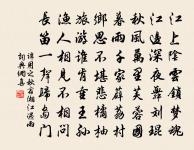 江上陰雲鎖夢魂
江邊深夜舞劉琨
秋風萬里芙蓉國
暮雨千家薜荔村
鄉思不堪悲橘柚
旅游誰肯重王孫
漁人相見不相問
長笛一聲歸島門
譚用之秋宿湘江遇雨
詞典網